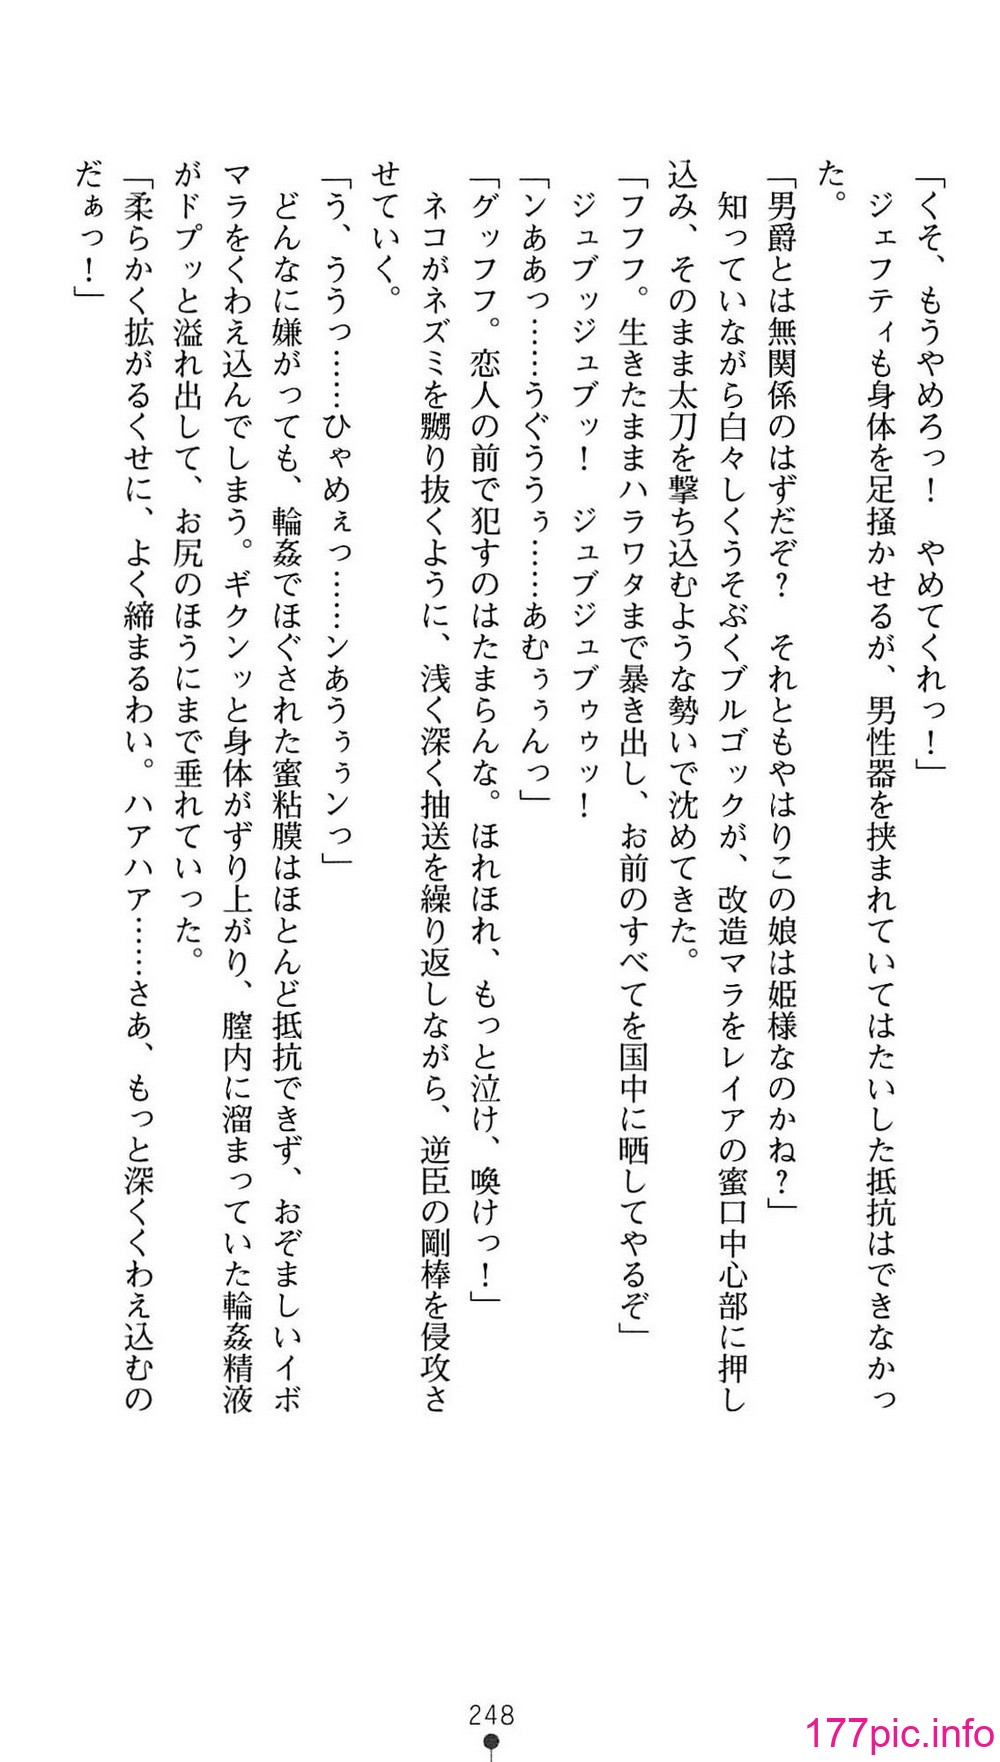 「くそ、もうやめろっ！　やめてくれっ！」
　ジェフティも身体を足掻かせるが、男性器を挟まれていてはたいした抵抗はできなかっ
た。
「男爵とは無関係のはずだぞ？　それともやはりこの娘は姫様なのかね？」
　知っていながら白々しくうそぶくブルゴックが、改造マラをレイアの蜜口中心部に押し
込み、そのまま太刀を撃ち込むような勢いで沈めてきた。
「フフフ。生きたままハラワタまで暴き出し、お前のすべてを国中に晒してやるぞ」
　ジュブッジュブッ！　ジュブジュブゥゥッ！
「ンああっ……うぐううぅ……あむぅぅんっ」
「グッフフ。恋人の前で犯すのはたまらんな。ほれほれ、もっと泣け、喚けっ！」
　ネコがネズミを嬲り抜くように、浅く深く抽送を繰り返しながら、逆臣の剛棒を侵攻さ
せていく。
「う、ううっ……ひゃめぇっ……ンあうぅぅンっ」
　どんなに嫌がっても、輪姦でほぐされた蜜粘膜はほとんど抵抗できず、おぞましいイボ
マラをくわえ込んでしまう。ギクンッと身体がずり上がり、膣内に溜まっていた輪姦精液
がドプッと溢れ出して、お尻のほうにまで垂れていった。
「柔らかく拡がるくせに、よく締まるわい。ハアハア……さあ、もっと深くくわえ込むの
だぁっ！」
248
177pic.info